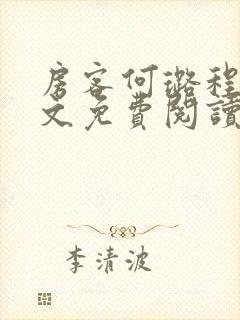 房客何璐程
文免費閱讀
李清波